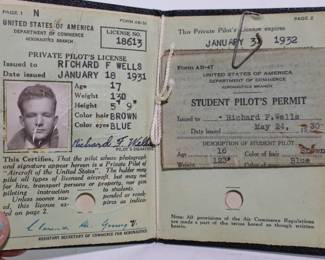 PAGE 1 N FORM AB-51
UNITED STATES OF AMERICA
DEPARTMENT OF COMMERCE
AERONAUTICS BRANCH
LICENSE NO.
18613
PRIVATE PILOT'S LICENSE
Issued to RICHARD F WELLS
Date issued JANUARY 18 1931
Age 17
Weight 130
Height 5' 9"
Color hair BROWN
Color eyes BLUE
Richard F Wells
PILOT'S SIGNATURE
This Certifies, That the pilot whose photograph
and signature appear hereon is a Private Pilot of
"Aircraft of the United States." The holder may
pilot all types of licensed aircraft, but may not
for hire, transport persons or property, nor give
piloting instruction to students.
Unless sooner
this license
ed on page 2.
Clarence M. Young
ASSISTANT SECRETARY OF COMMERCE FOR AERONAUTICS
PAGE 2
This Private Pilot's License expires
JANUARY 1932
Form AB-47
UNITED STATES OF AMERICA
DEPARTMENT OF COMMERCE
AERONAUTICS BRANCH
STUDENT PILOT'S PERMIT
Richard F. Wells
May 24, 1930
DESCRIPTION OF STUDENT PILOT
16
Weight 123
Color hair
Blue
NOTE: All provisions of the Air Commerce Regulations
are made a part of the terms hereof as though written
herein.